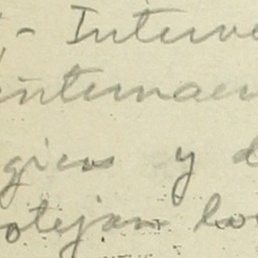 - Interve
internacio
gicos y d
otejan los